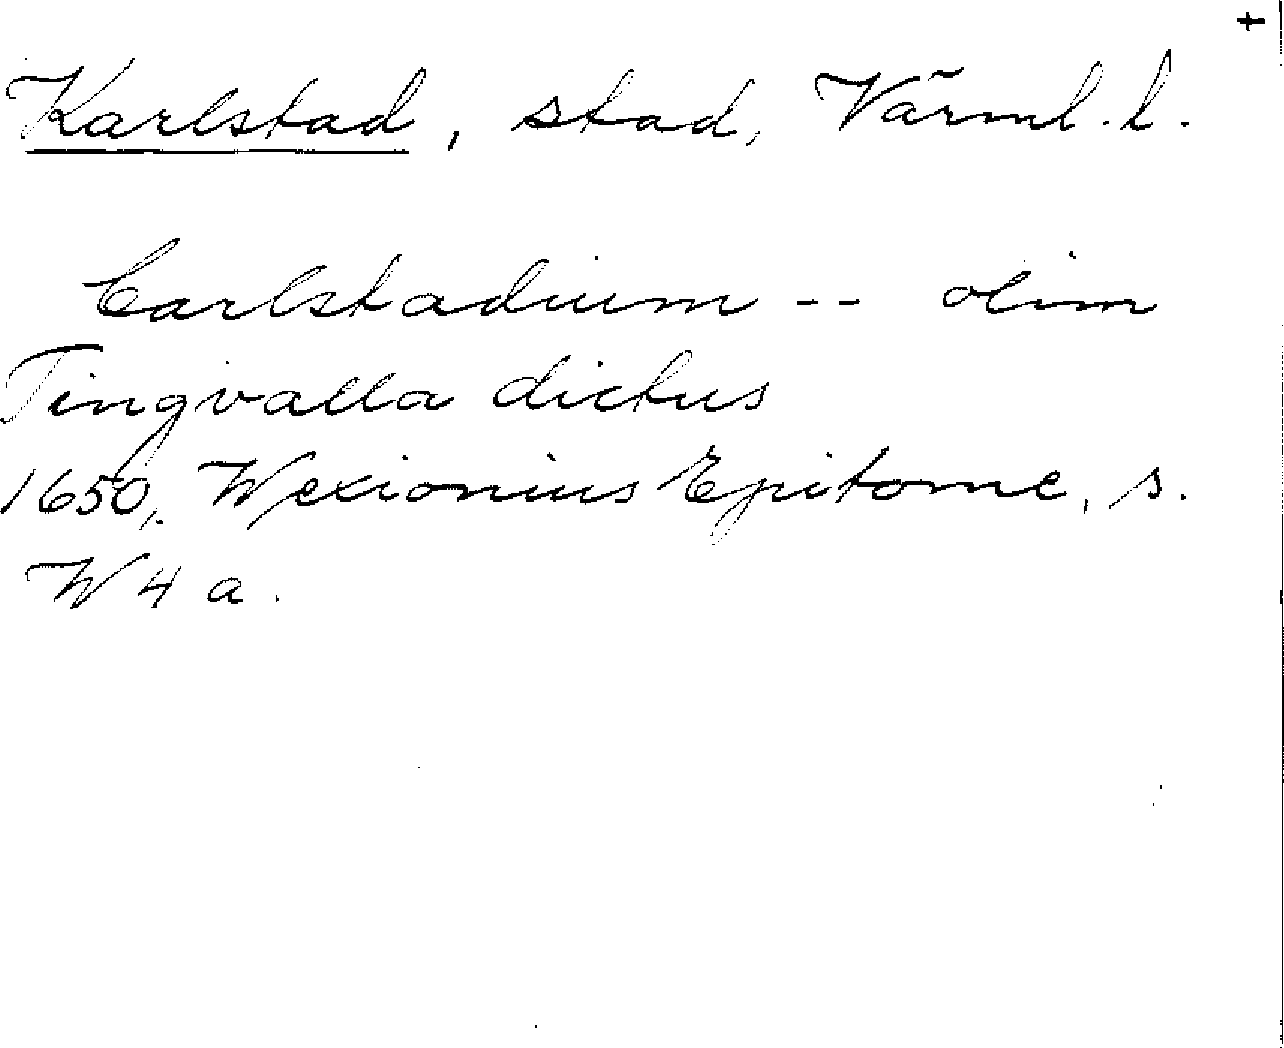 +
Karlstad, stad, Värml. l.
Carlstadium -- olim
Tingvalla dictus
1650, Wexionius Epitome, s.
W 4 a.